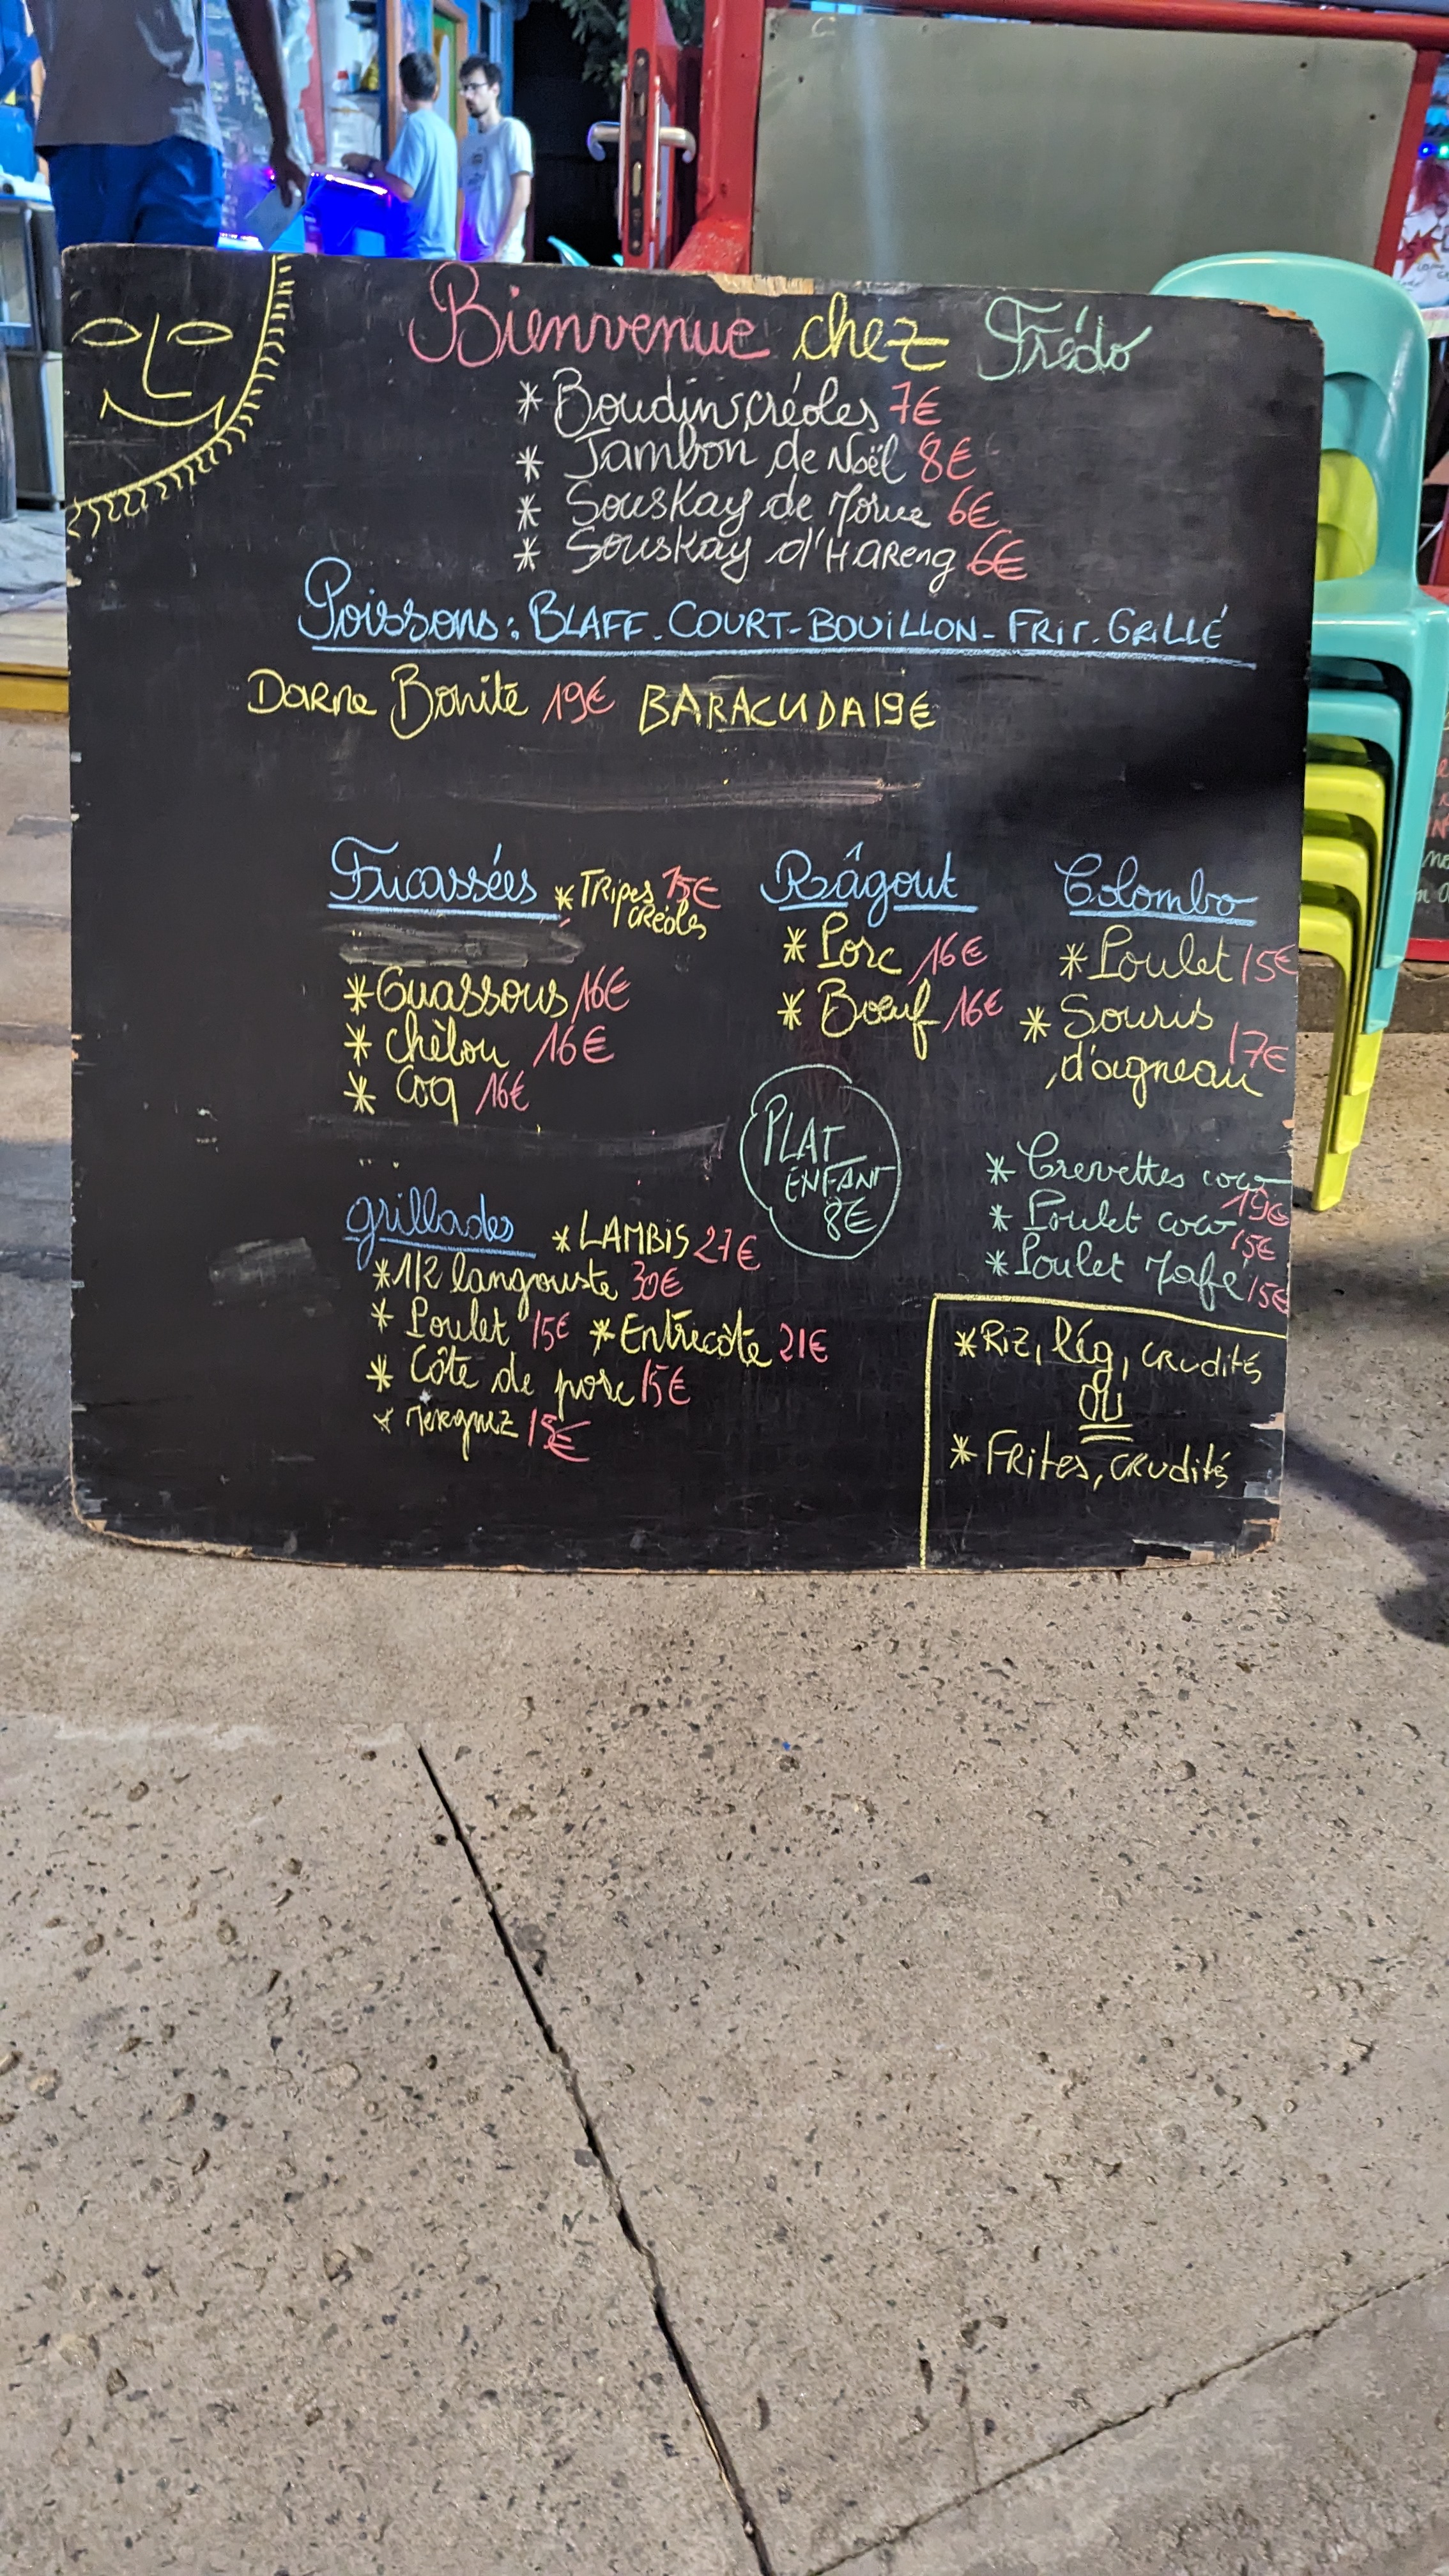 Bienvenue chez Frédo
* Boudins créoles 7€
* Jambon de Noël 8€
* Souskay de Morue 6€
* Souskay d'Hareng 6€
Poissons: BLAFF - COURT-BOUILLON - FRIT - GRILLÉ
Darne Bonite 19€ BARACUDA 19€
Fricassées * Tripes créoles 15€
* Ouassous 16€
* Chèlou 16€
* Coq 16€
Râgout
* Porc 16€
* Bœuf 16€
Colombo
* Poulet 15€
* Souris d'agneau 17€
PLAT
ENFANT
8€
* Crevettes coco 19€
* Poulet coco 15€
* Poulet Mafé 15€
grillades * LAMBIS 27€
* 1/2 langouste 30€
* Poulet 15€ * Entrecôte 21€
* Côte de porc 15€
* Merguez 15€
* Riz, lég, crudité
OU
* Frites, crudités